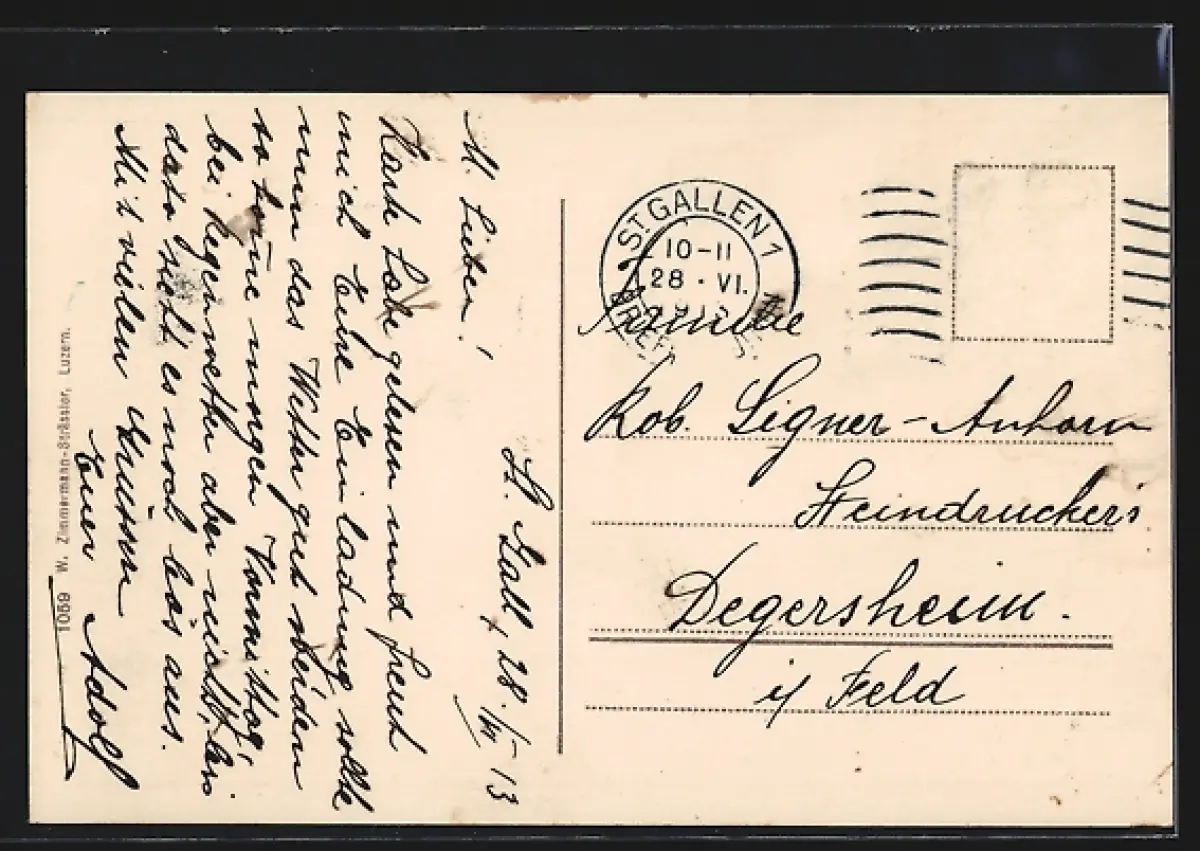 St. Gall, 28./VI 13
M. Lieben!
Karte habe gelesen und freut
mich Eure Einladung sollte
nun das Wetter gut werden
so komme morgen Vormittag,
bei Regenwetter aber nicht, bis
dato sieht es noch bös aus.
Mit vielen Grüssen
Euer Adolf
1059 W. Zimmermann-Strässler, Luzern.
ST. GALLEN 1
10-11
28 · VI.
Familie
Rob. Signer-Anhorn
Steindruckers
Degersheim.
i/ Feld